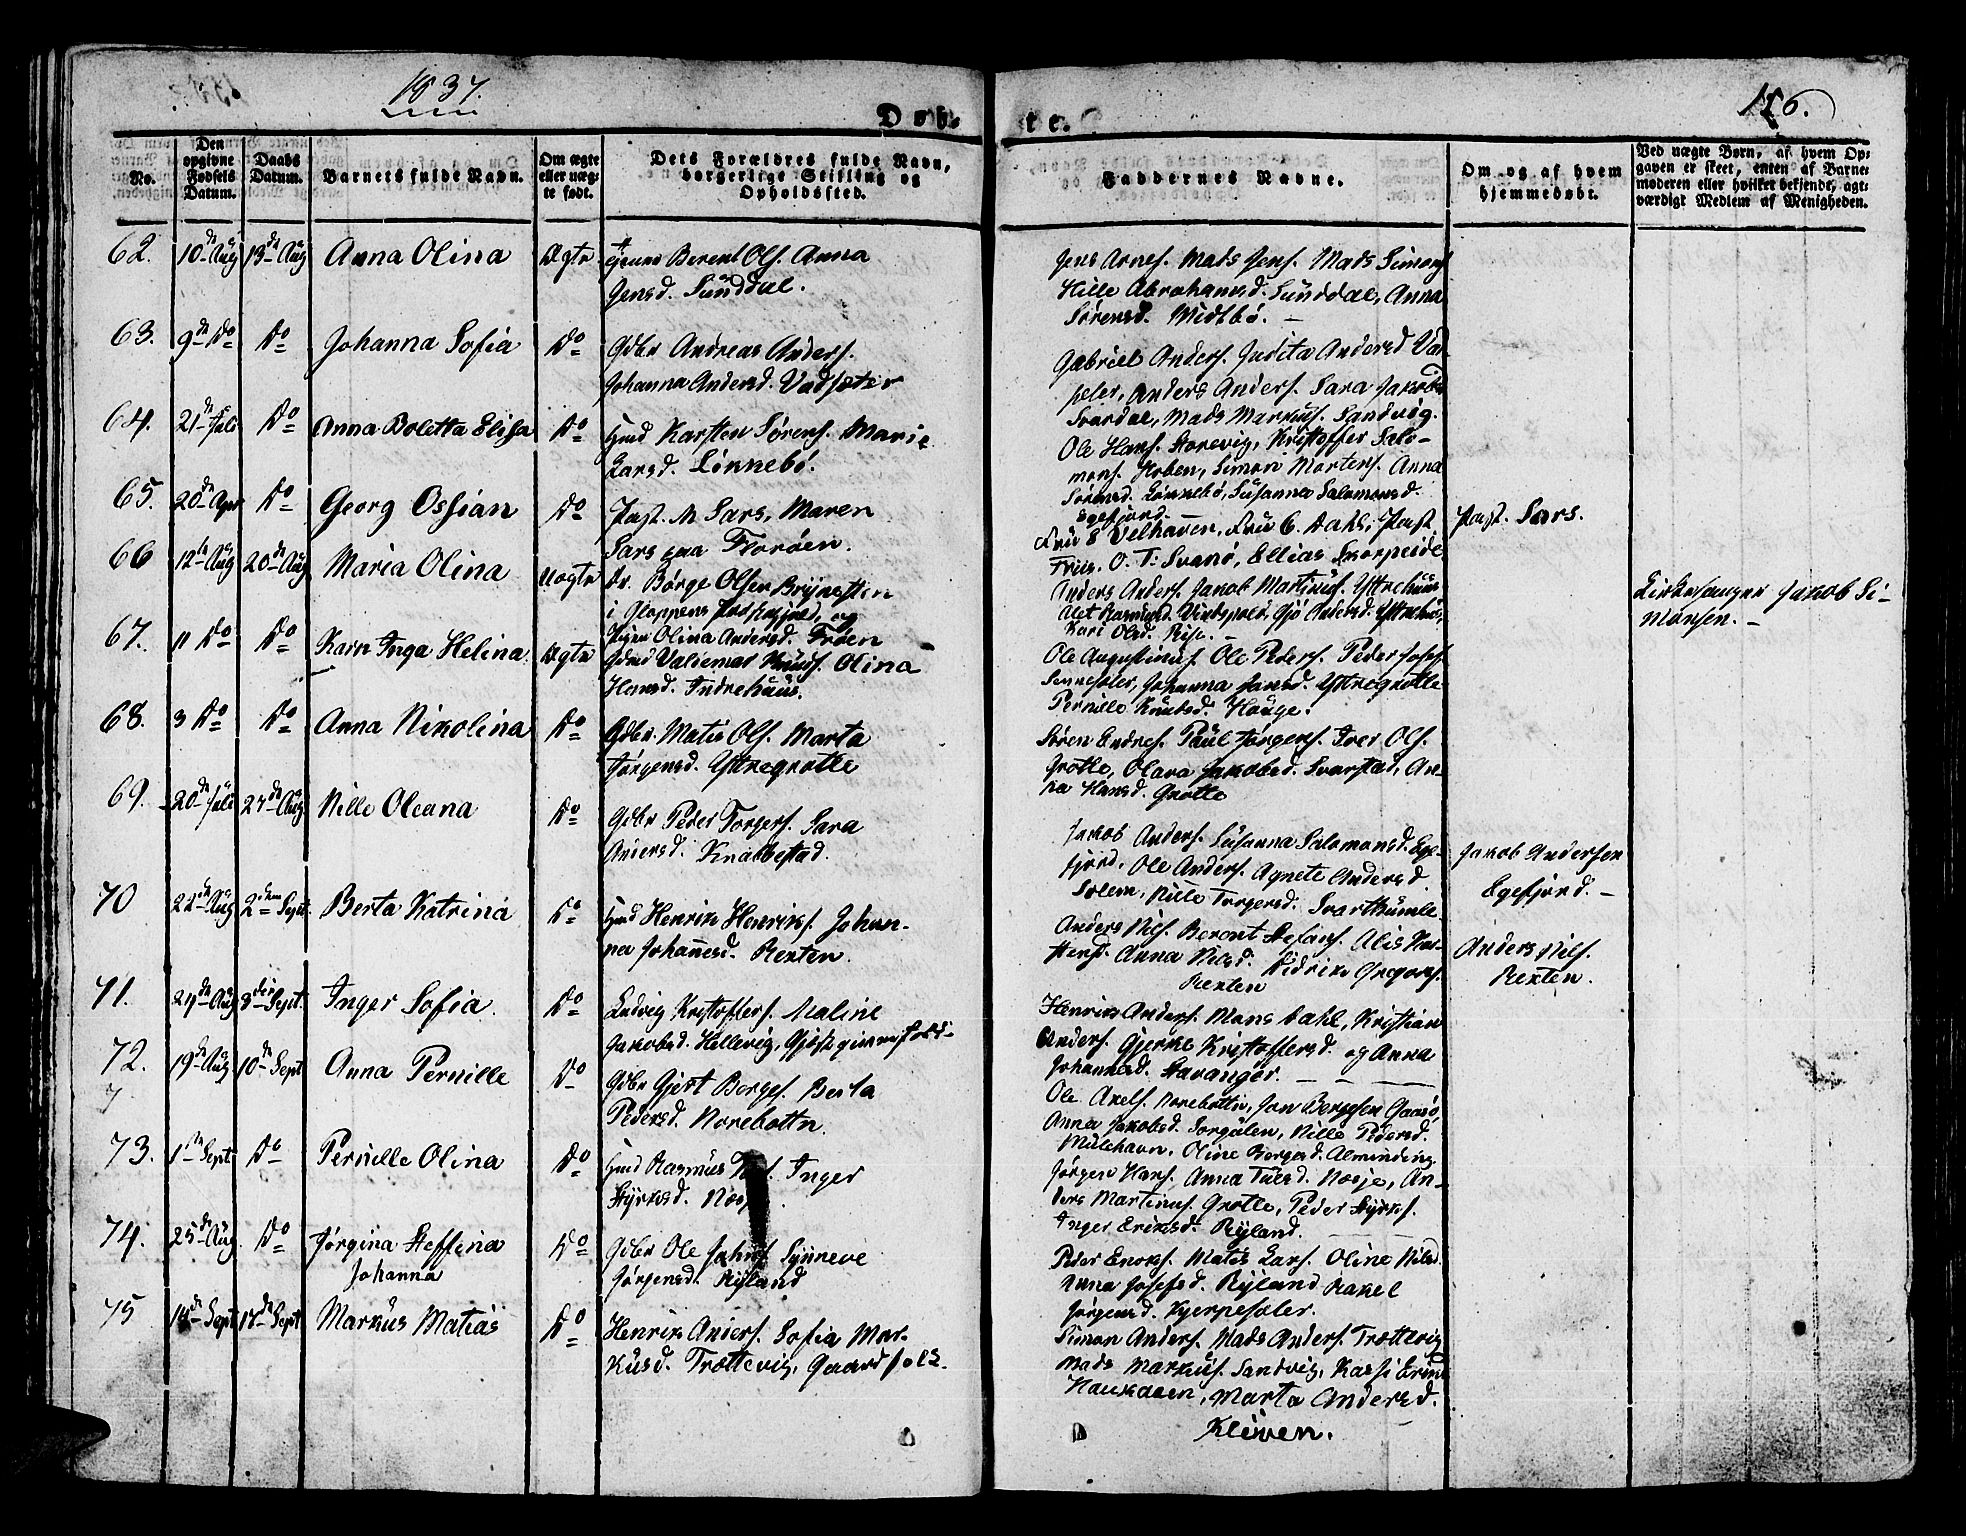 1837.
Døb- te.
126.
No.
Den opgivne Fødsels Datum.
Daabs Datum.
Barnets fulde Navn.
Om ægte eller uægte født.
Dets Forældres fulde Navn, borgerlige Stilling og Opholdssted.
Faddernes Navne.
Om og af hvem hjemmedøbt.
Ved uægte Børn, af hvem Opgaven er skeet, enten af Barnemoderen eller hvilket bekjendt, agtværdigt Medlem af Menigheden.
62. 10de Aug 13de Aug Anna Olina Ægte Berent Ols. Anna
Jensd. Sunddal.
Jens Arnes. Mads Jens. Mads Simons
Hille Abrahamsd. Sunddal, Anna
Sørensd. Midtbö. –
63. 9de Do Do Johanna Sofia Do Gdbr Andreas Anders.
Johanna Andersd. Vadsæter
Gabriel Anders. Judita Andersd Vad-
sæter, Anders Anders. Sara Jakobs
Svardal, Mads Markus. Sandvig.
64. 21de Juli Do Anna Boletta Elisa Do Hmd Karsten Sørens. Marie
Larsd. Lönnebö.
Ole Hans. Storevig, Kristoffer Salo-
mons. Hoben, Simon Mortens. Anna
Sörensd. Lönnebö, Susanna Salomonsd.
Egefjord.
65. 20de Apr Do Georg Ossian Do Past. M Sars, Maren
Sars paa Floröen.
Fru E Velhaven, Fru C. Dahl, Past
Friis. O. T. Svanö, Ellias Skorpeide
Past. Sars.
66 12te Aug 20de Aug Maria Olina Uægte Börge Olsen Brynesteen
i Gloppens Præstegjæld, og
Pigen Olina Andersd. Fröen
Anders Anders. Jakob Martinus. Yttrehuus
Andersd. Yttrehus,
Kari Olsd. Rise. –
Kirkesanger Jakob Si-
monsen. –
67. 11 Do Do Karn Inga Helina Ægte Valdemar Knuds. Olina
Hansd. Indrehuus.
Ole Augustinus. Ole Peders. Peder Josef.
Sennesæter, Johanna Jansd. Yttregrotle
Pernille Knutsd. Hauge.
68. 3 Do Do Anna Nikolina Do Gdbr. Matis Ols. Marta
Jörgensd. Yttregrotle
Sören Endres. Paul Jörgens. Iver Ols.
Grotle, Olava Jakobsd. Svarstad, An-
na Hansd. Grotle
69. 20de Juli 27de Aug Nille Oleana Do Gdbr Peder Torgers. Sara
Andersd. Knabbestad.
Jakob Anders. Susanna Salomonsd. Ege-
fjord, Ole Anders. Agnete Andersd
Solem, Nille Torgersd. Svarthumle
Jakob Andersen
Egefjord. –
70 22de Aug 2den Sept Berta Katrina Do Hmd Henrik Henriks. Johan-
na Johannesd. Rexten.
Anders Nils. Berent Stefans. Alis Kar-
stensd. Anna Nilsd. Didrik Gregors.
Rexten
Anders Nils.
Rexten.
71. 24de Aug 3die Sept. Inger Sofia. Do Ludvig Kristoffers. Maline
Jakobsd. Hellevig, Gjæstgiverfolk.
Henrik Anders. Mons Dahl, Kristian
Anders. Gjerke Kristoffersd. og Anna
Johannesd. Stavanger. –
72. 19de Aug 10de Sept Anna Pernille Do Gdbr Gjert Börges. Berta
Pedersd. Norebottn.
Ole Axels. Norebottn, Jon Bergesen Gaasö,
Anna Jakobsd. Sorgulen, Nille Pedersd.
Mulehavn, Oline Borgersd. Almending.
7
73. 1ste Sept. Do Pernille Olina Do Hmd Rasmus Inger
Styrksd.
Jörgen Hans. Anna Nosje, An-
ders Martinus. Grotle, Peder Styrks.
Inger Eriksd. Ryland.
74. 25de Aug Do Jørgina Steffina
Johanna
Do Gdbr Ole Synneve
Jörgensd. Ryland
Peder Enoks. Matis Lars. Oline Nilsd
Anna Josefsd. Ryland Rakel
Jørgensd. Kjerpesæter.
75 14de Sept 17de Sept Markus Matias Do Henrik Anders. Sofia Mar-
kusd. Trottevig, Gaardfolk.
Simon Anders. Mads Anders. Trottevig
Mads Markus. Sandvig,
Marta Andersd.
Kleiven.